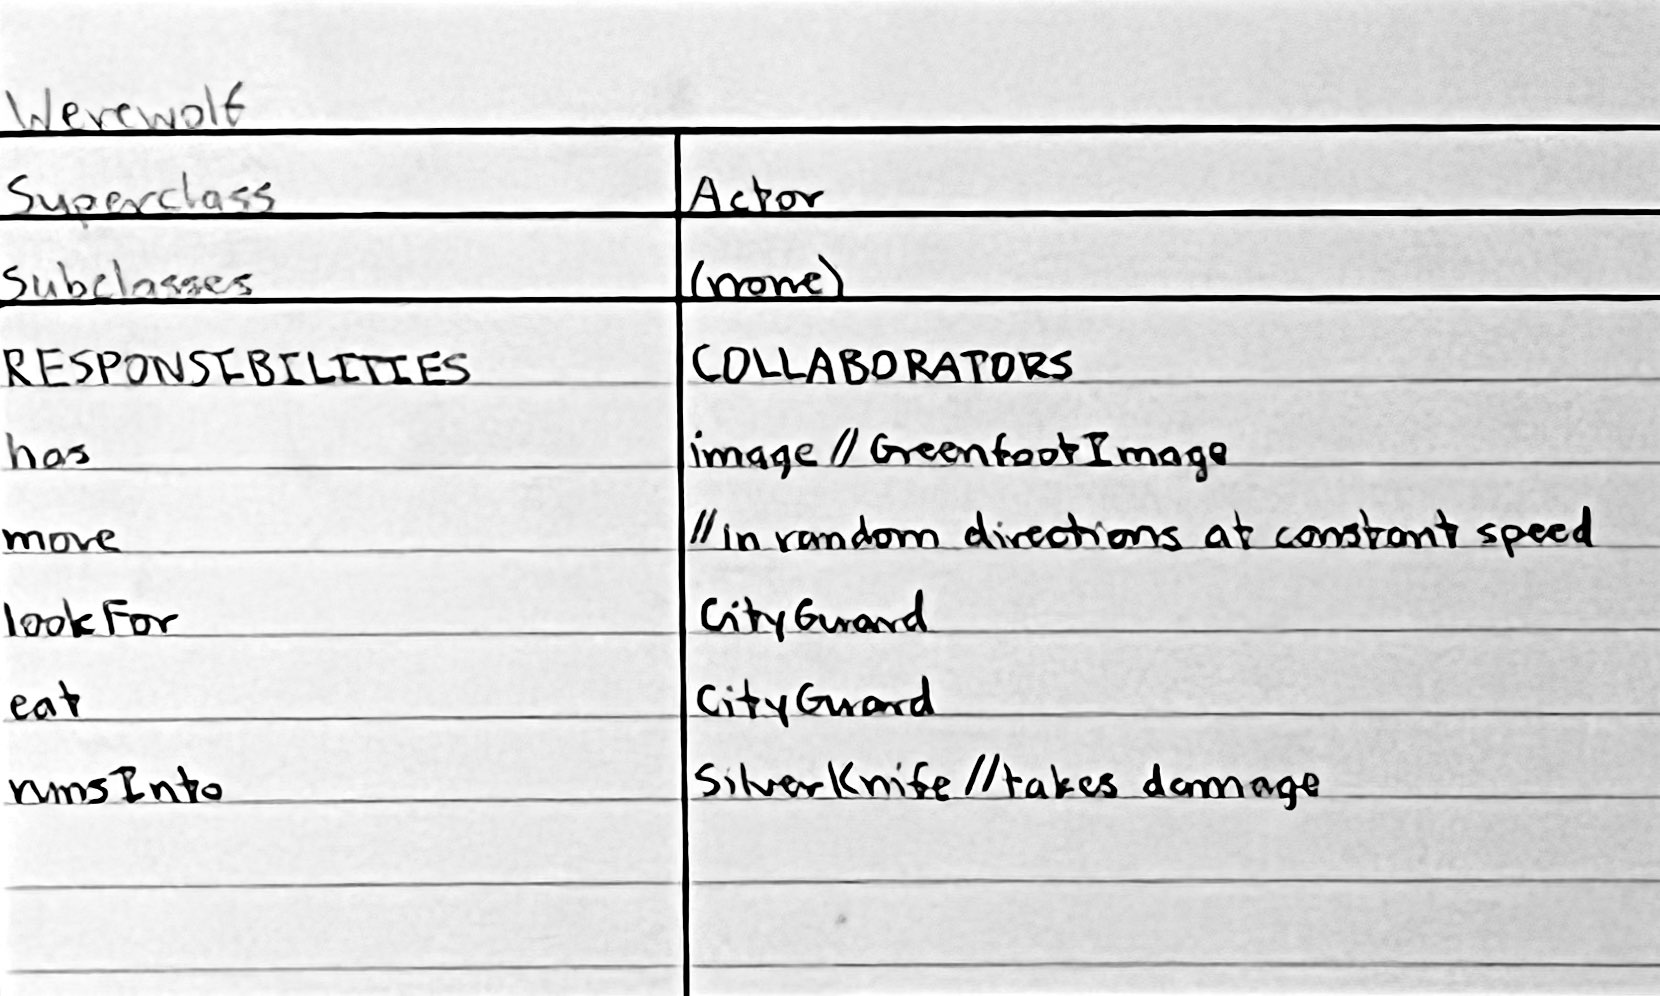 Werewolf
Superclass Actor
Subclasses (none)
RESPONSIBILITIES COLLABORATORS
has image // GreenfootImage
move // in random directions at constant speed
lookFor CityGuard
eat CityGuard
runsInto SilverKnife // takes damage